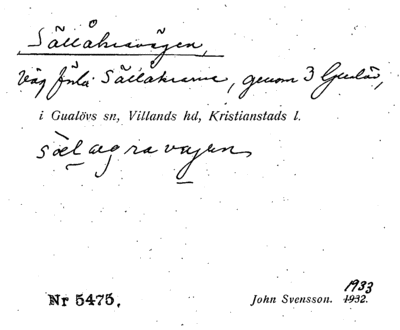 Sällåkravägen,
Väg från Sällåkrarne, genom 3 Gualöv,
i Gualövs sn, Villands hd, Kristianstads l.
sälagravagen
Nr 5475. John Svensson. 1932. 1933